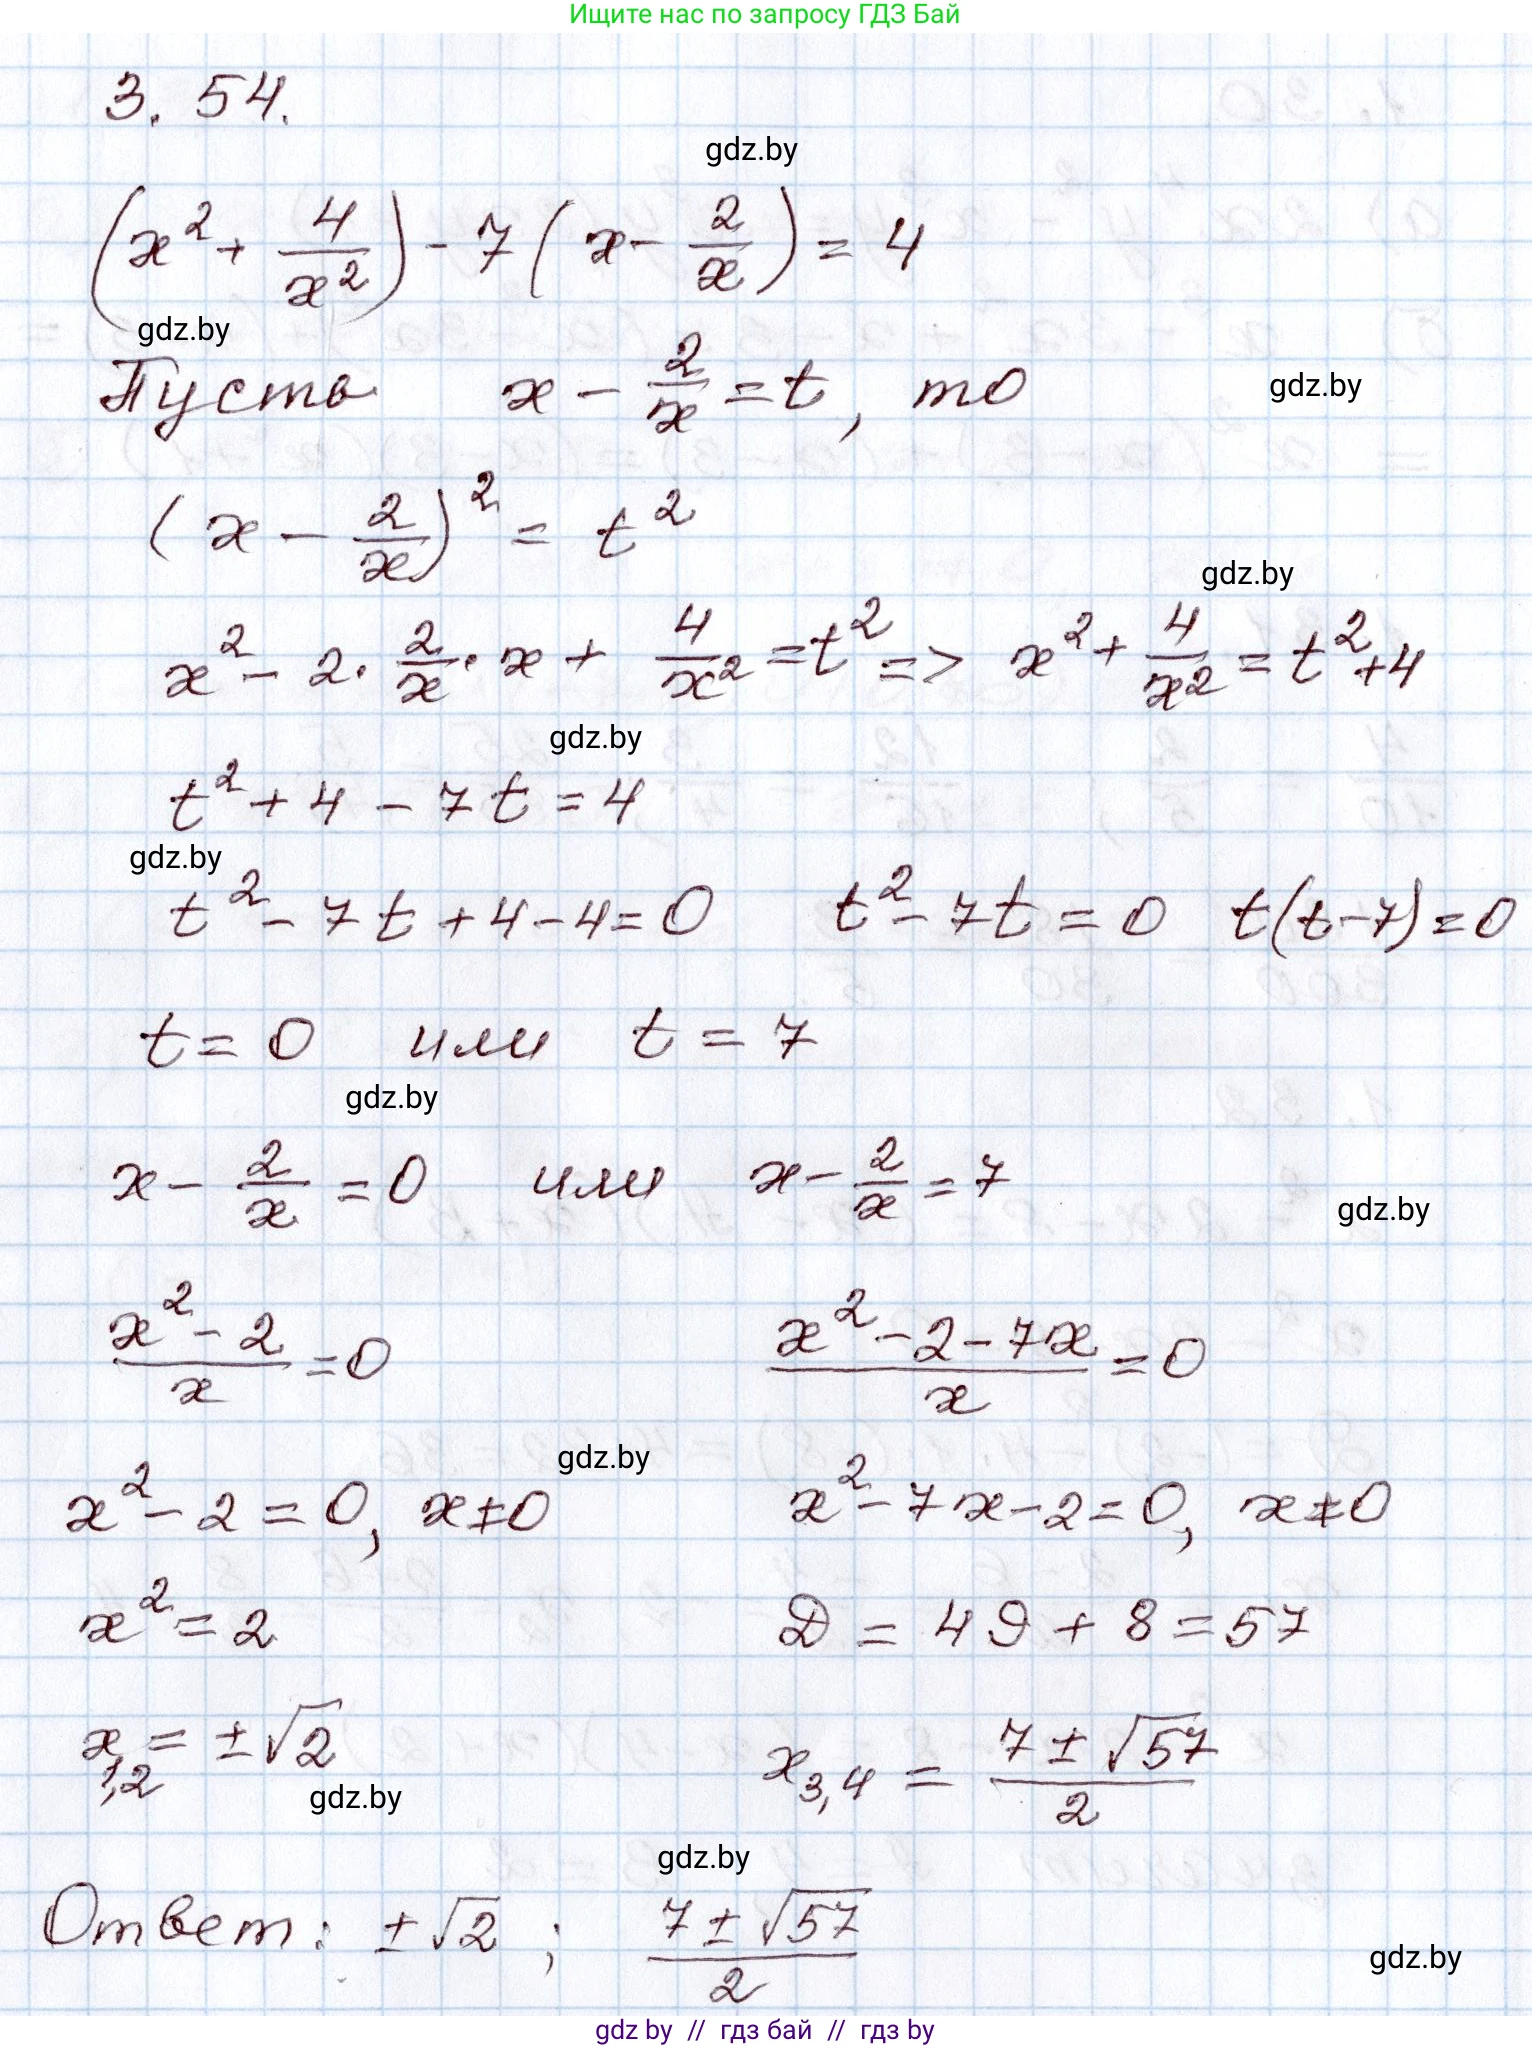 Ищите нас по запросу ГДЗ Бай
3. 54.
gdz.by
(x² + 4/x²) - 7(x - 2/x) = 4
gdz.by
Пусть x - 2/x = t, то
gdz.by
(x - 2/x)² = t²
gdz.by
x² - 2 · 2/x · x + 4/x² = t² => x² + 4/x² = t² + 4
gdz.by
t² + 4 - 7t = 4
gdz.by
t² - 7t + 4 - 4 = 0 t² - 7t = 0 t(t - 7) = 0
t = 0 или t = 7
gdz.by
x - 2/x = 0 или x - 2/x = 7
gdz.by
(x² - 2)/x = 0 (x² - 2 - 7x)/x = 0
gdz.by
x² - 2 = 0, x ≠ 0 x² - 7x - 2 = 0, x ≠ 0
x² = 2 D = 49 + 8 = 57
x₁,₂ = ±√2 x₃,₄ = (7 ± √57)/2
gdz.by
gdz.by
Ответ: ±√2 ; (7 ± √57)/2
gdz.by
gdz by // гдз бай // гдз by